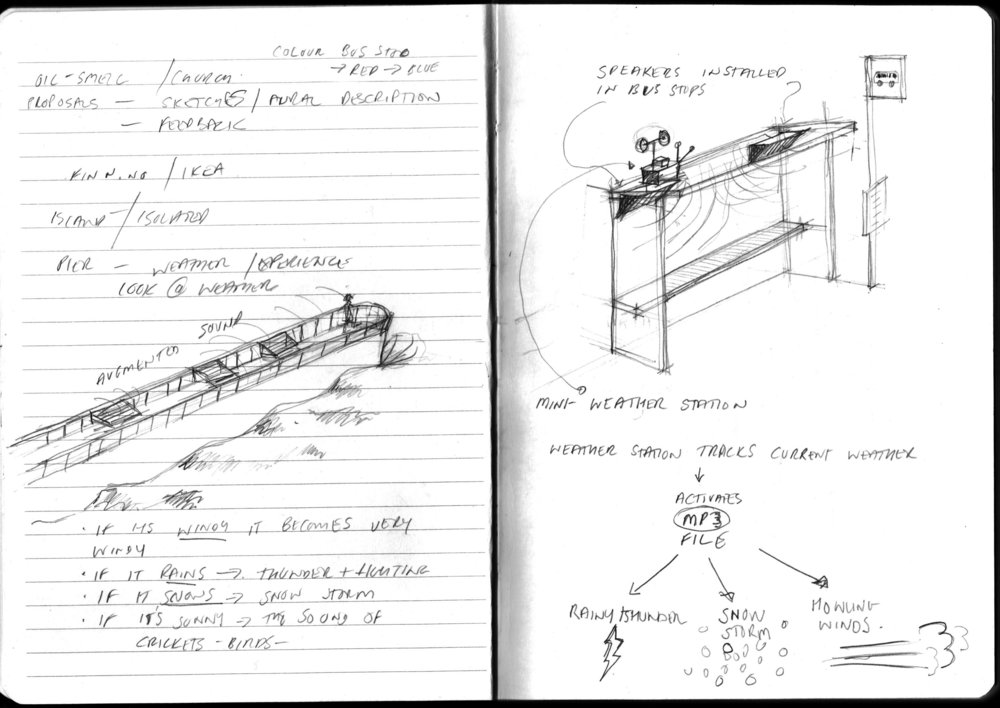 COLOUR BUS STOP
→ RED → BLUE
OIL-SMELL / CHURCH
PROPOSALS — SKETCHES / AURAL DESCRIPTION
— FEEDBACK
/ IKEA
ISLAND / ISOLATED
PIER — WEATHER / EXPERIENCE
LOOK @ WEATHER
AUGMENTED SOUND
· IF ITS WINDY IT BECOMES VERY
WINDY
· IF IT RAINS → THUNDER + LIGHTING
· IF IT SNOWS → SNOW STORM
· IF IT'S SUNNY → THE SOUND OF
CRICKETS - BIRDS -
SPEAKERS INSTALLED
IN BUS STOPS
MINI- WEATHER STATION
WEATHER STATION TRACKS CURRENT WEATHER
↓
ACTIVATES
MP3
FILE
RAINY/THUNDER
SNOW
STORM
HOWLING
WINDS.